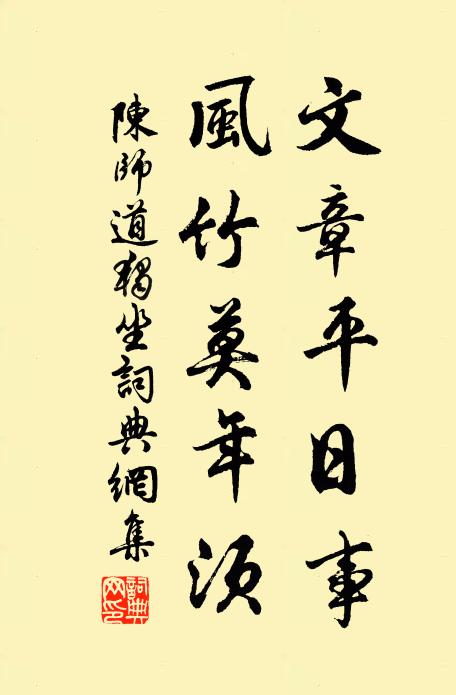 文章平日事
風竹莫年須
陳師道獨坐詞典網集
詞典網印